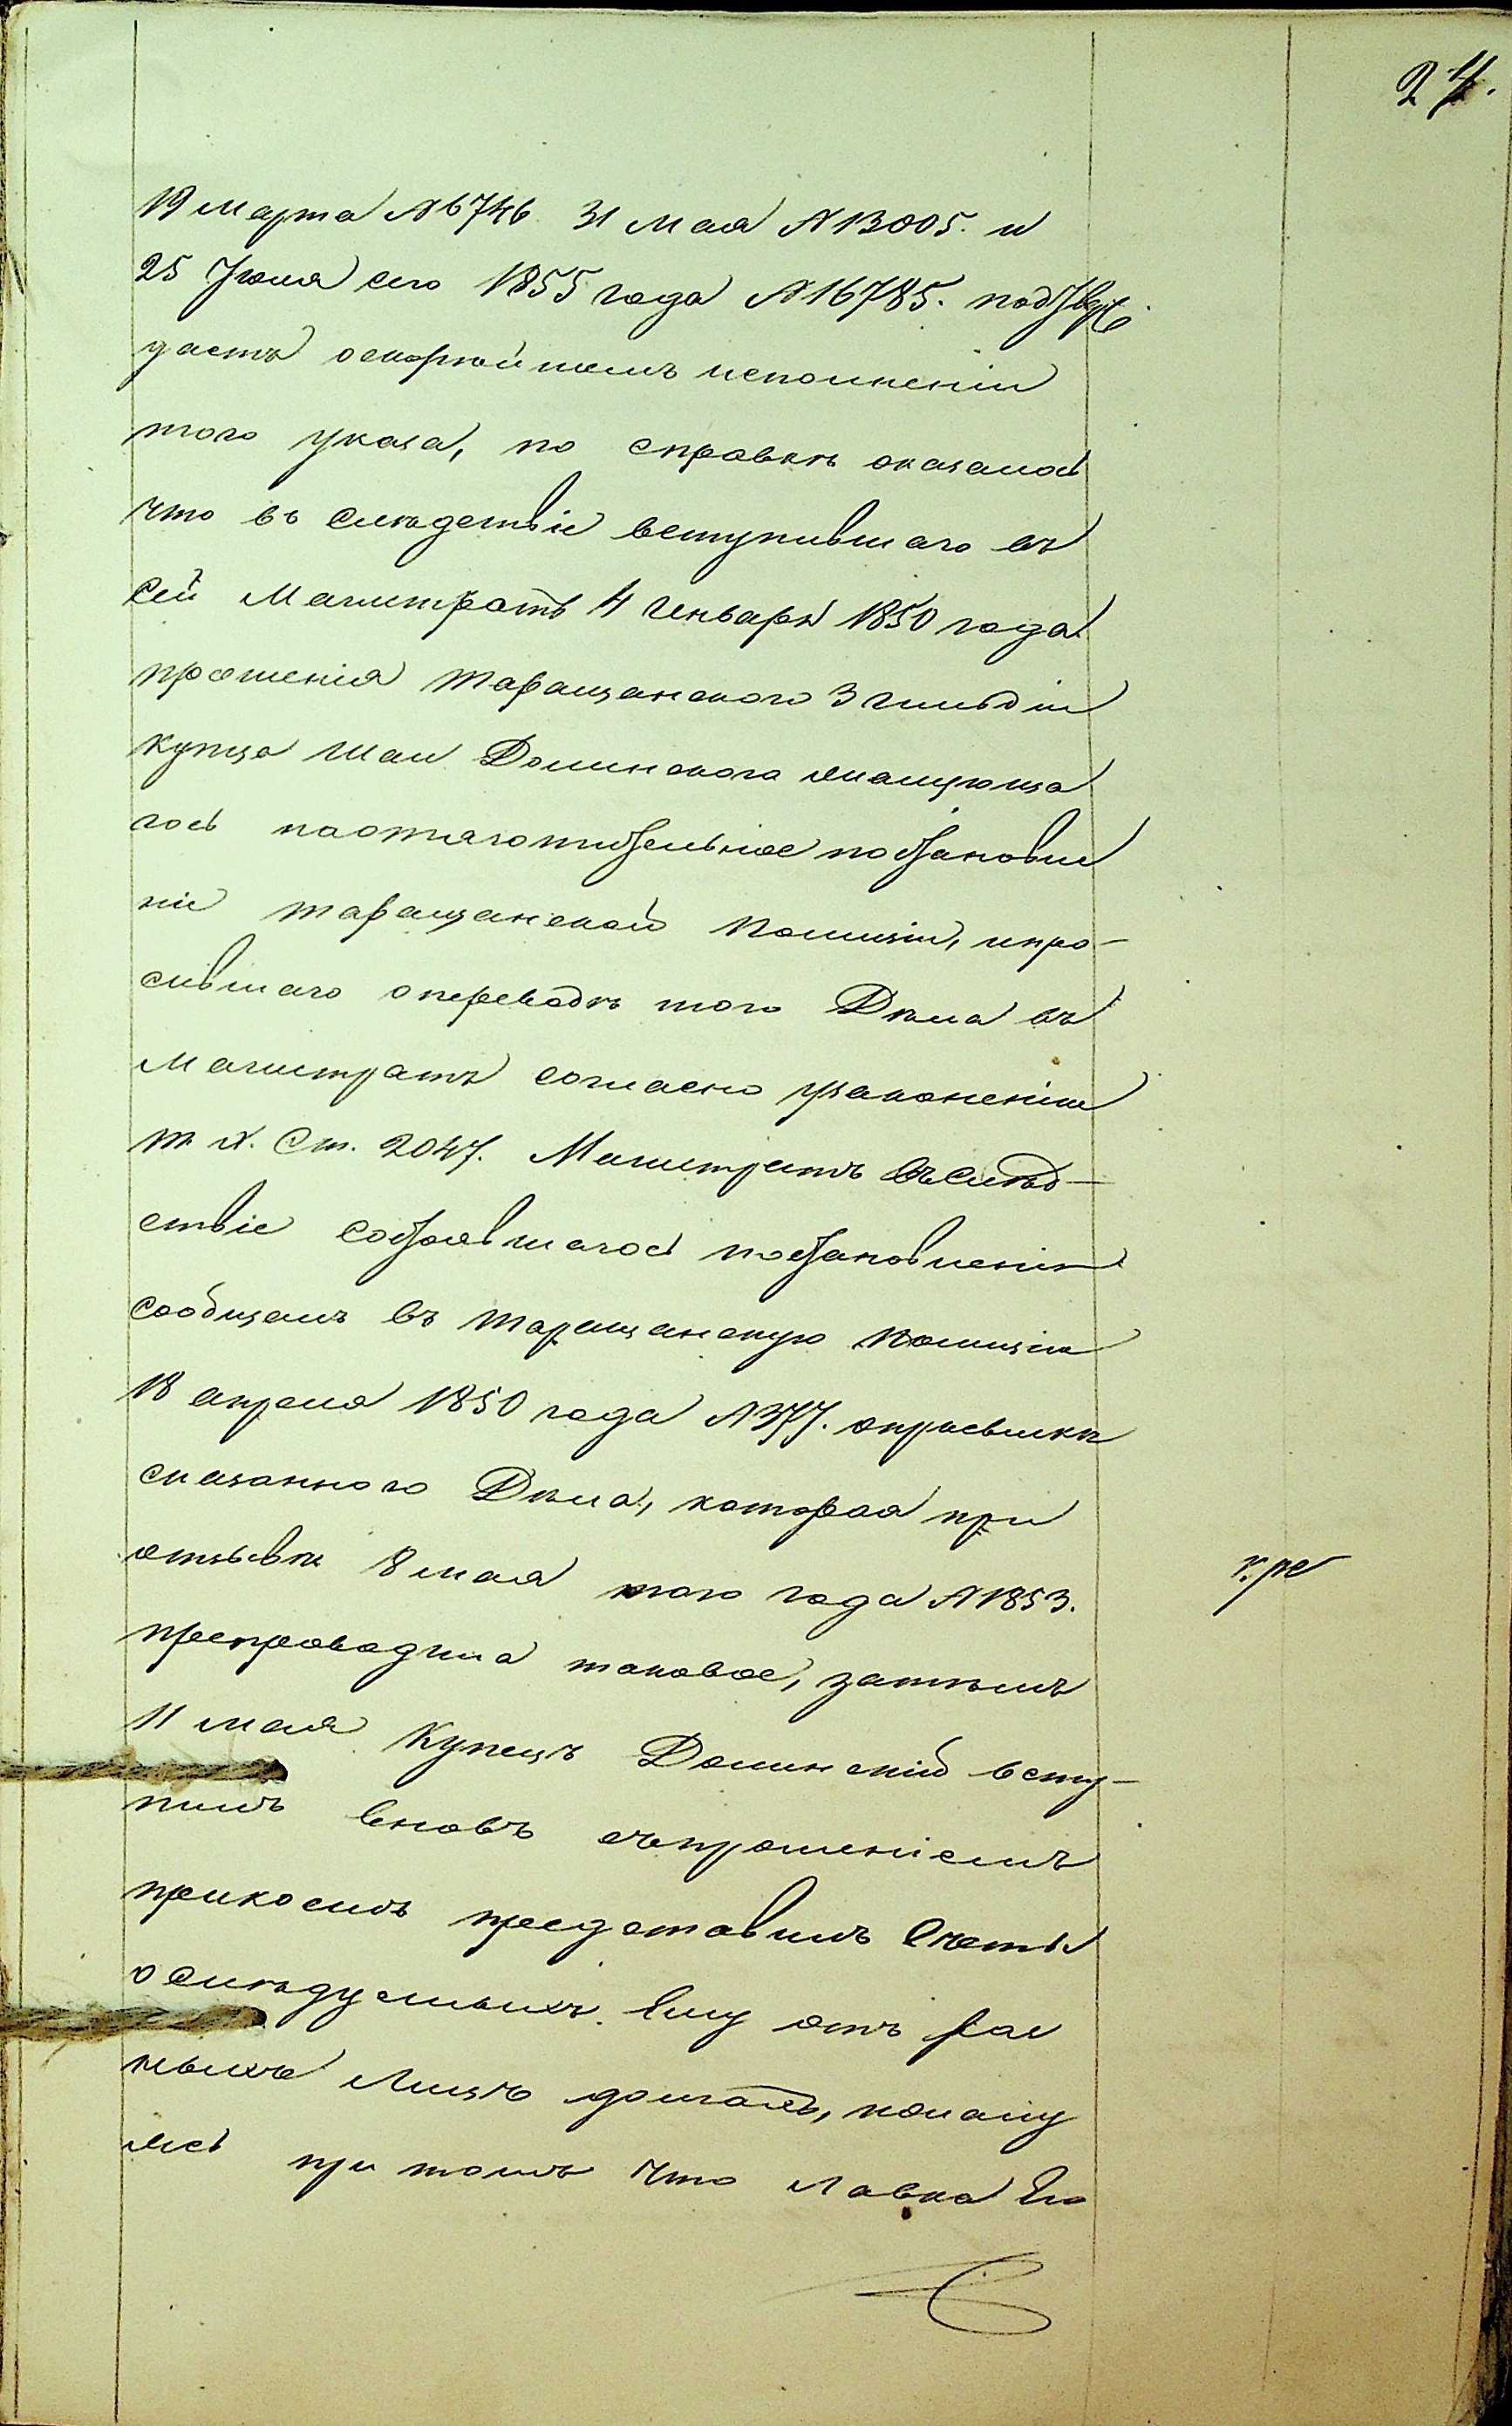 24.
19 марта №6746. 31 мая №13005. и
25 Июля сего 1855 года №16785. подтверж
даетъ о скорѣйшемъ исполненіи
того указа, по справкѣ оказалось
что въ слѣдствіе вступившаго въ
сей Магистратъ 4 Генваря 1850 года
прошенія таращанского 3 гильдіи
купца Долинского жалующа
гось на отяготительное постановле
ніе таращанской полиціи, и про-
сившаго о переводѣ того Дѣла въ
магистратъ согласно узаконенію
т. X. Ст. 2047. Магистратъ въ слѣд-
ствіе состоявшагось постановленія
сообщалъ въ таращанскую полицію
18 апреля 1850 года №377. о присылкѣ
сказанного Дѣла, которая при
отзывѣ 8 мая того года №1853.
препроводила таковое, затѣмъ
11 мая Купецъ Долинскій всту-
пилъ вновь съ прошеніемъ
при коемъ представилъ Счеты
о слѣдуемыхъ Ему отъ раз
ныхъ Лицъ долгахъ, жалу
ясь при томъ что лавка Его